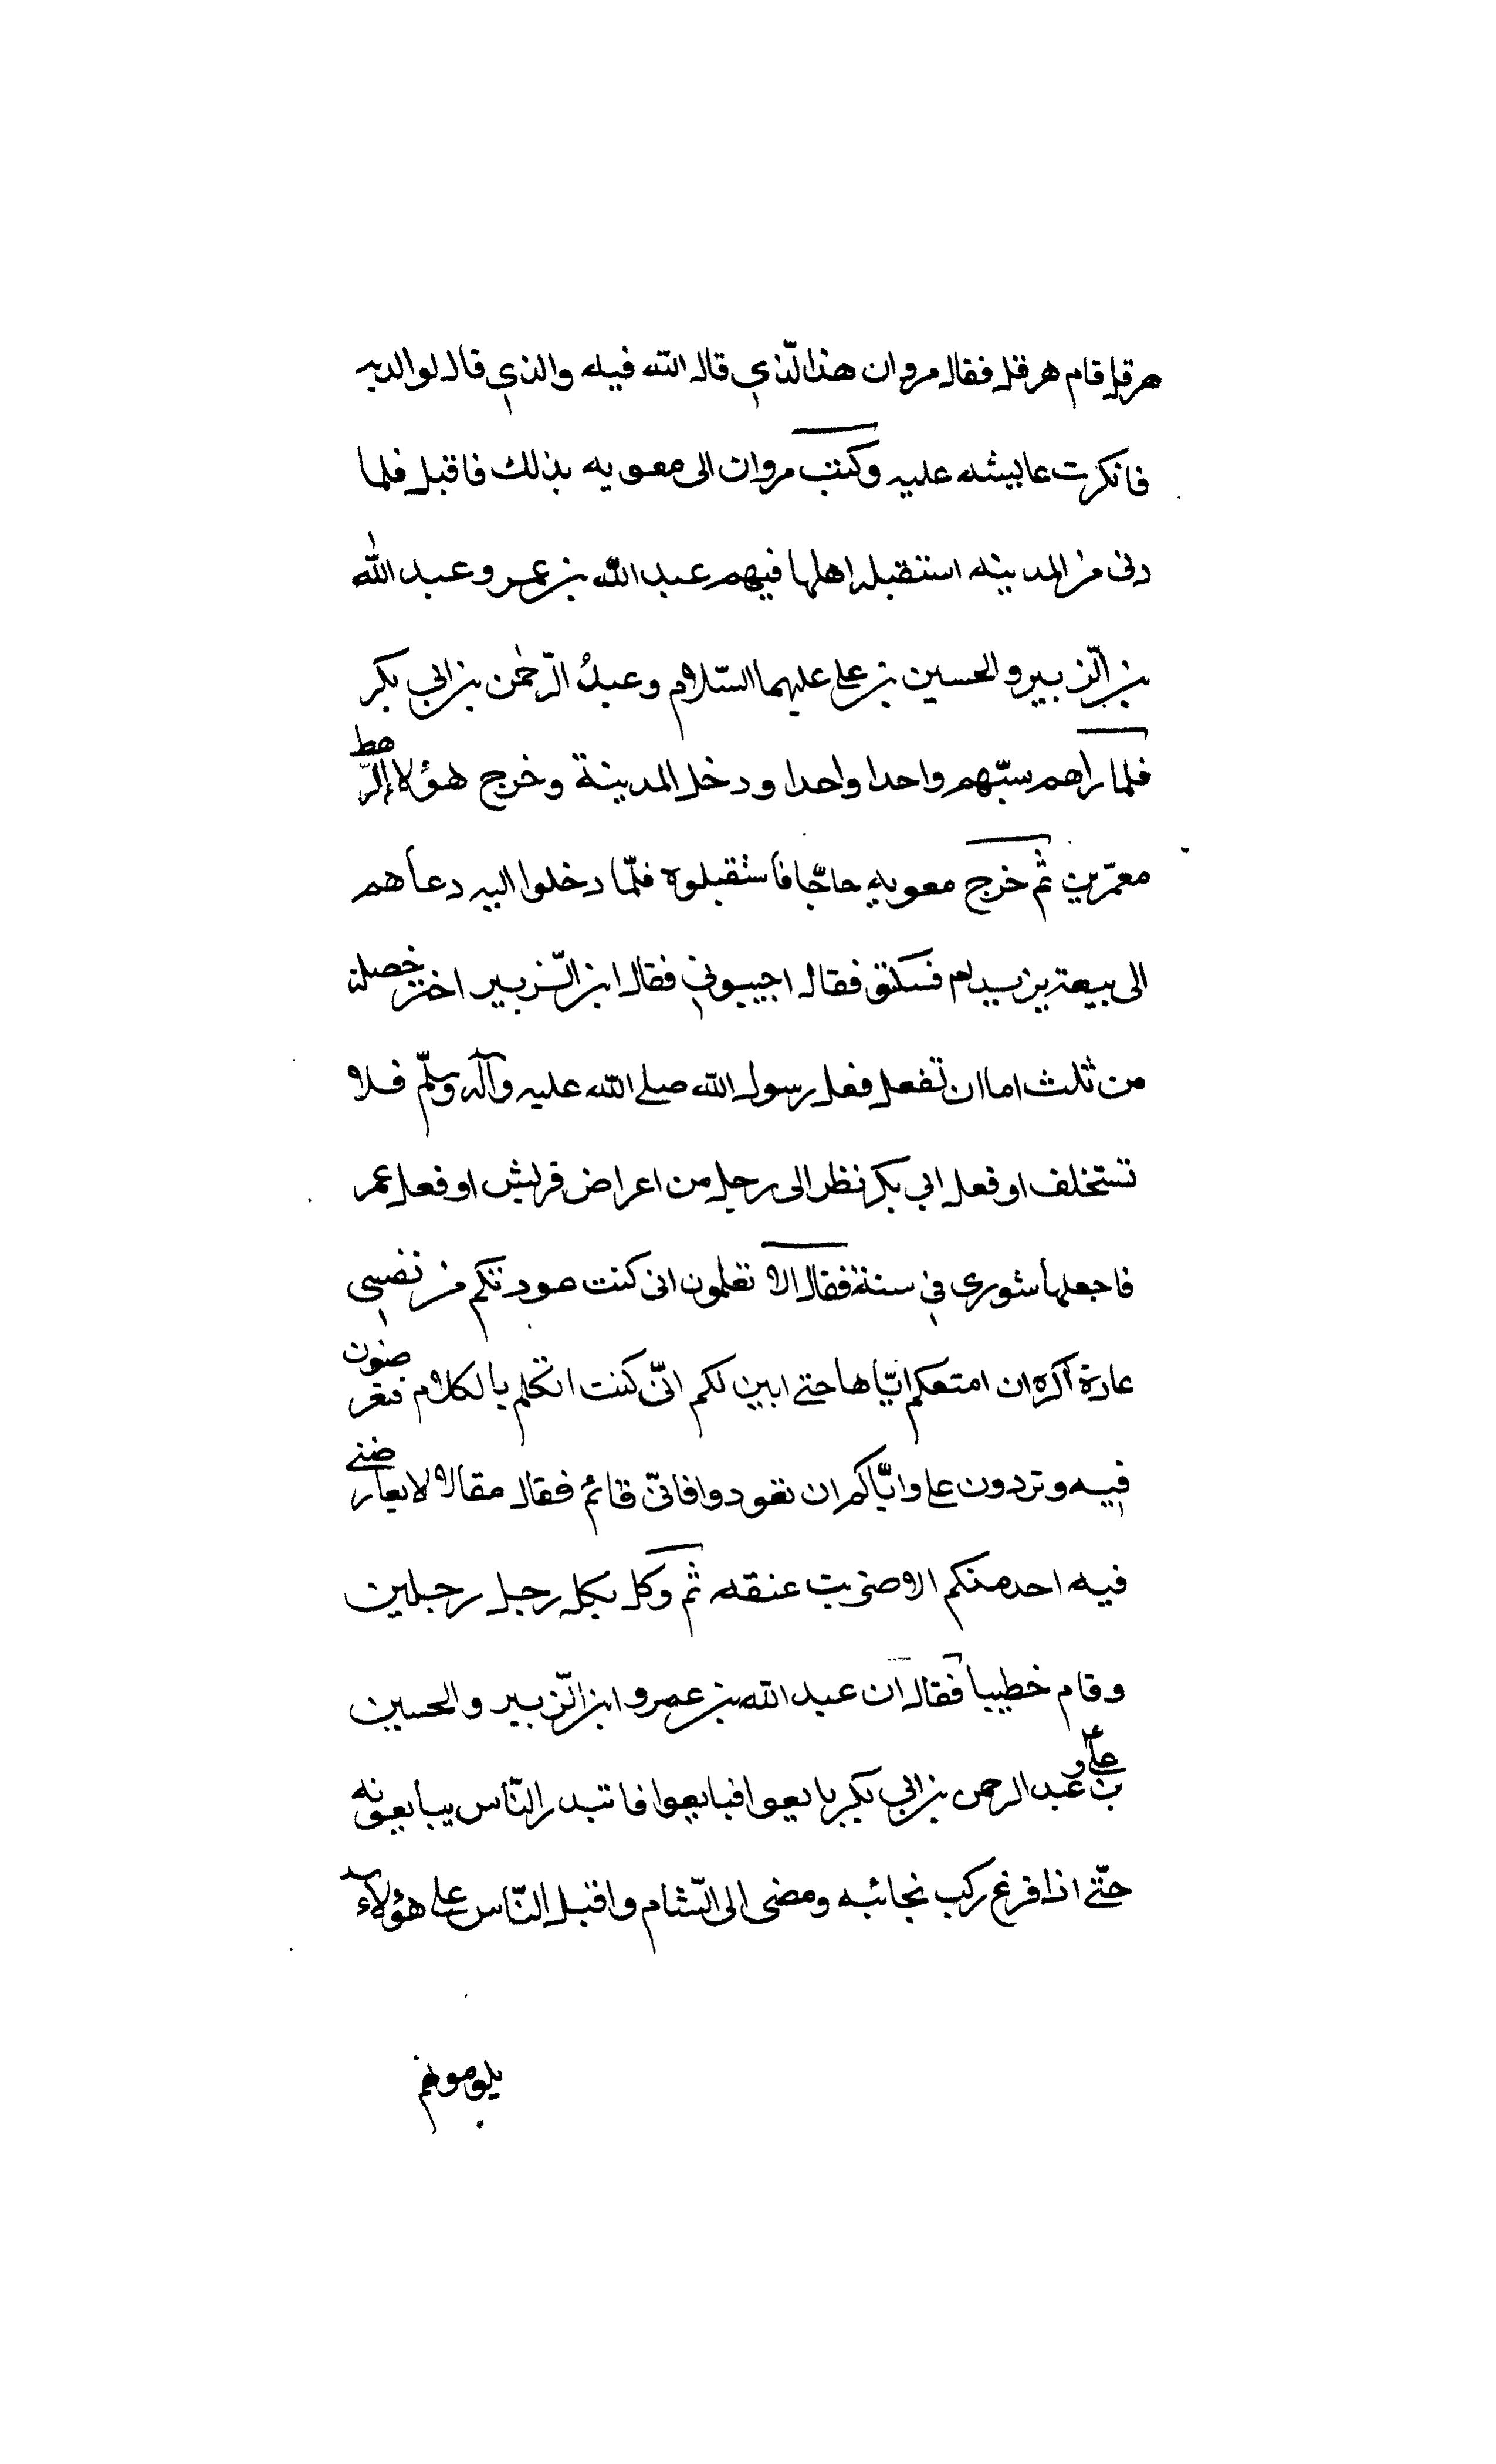 هرقل قام هرقل فقال مروان هذا الّذي قال الله فيه والذي قال لوالديه
فانكرت عايشه عليه وكتب مروان الى معويه بذلك فاقبل فلما
دنى من المدينه استقبله اهلها فيهم عبد الله بن عمر وعبد الله
بن الّزبير والحسين بن علي عليهما السّلام وعبدُ الرّحمن بن ابي بكر
فلما راهم سبّهم واحدا واحدا ودخل المدينة وخرج هؤلاء الرّهط
معتمرين ثم خرج معويه حاجّا فاستقبلوه فلمّا دخلوا اليه دعاهم
الى بيعة يزيد فسكتوا فقال اجيبوني فقال ابن الّزبير اختر خصلة
من ثلث اما ان تفعل فعل رسول الله صلى الله عليه وآله وسلّم فلا
تستخلف او فعل ابي بكر نظر الى رجل من اعراض قريش او فعل عمر
فاجعلها شورى في ستة فقال الا تعلمون انى كنت عودتكم من نفسي
عادة اكره ان امنعكم ايّاها حتى ابين لكم انّى كنت اتكلم بالكلام فتعرضون
فيه وتردون علي وايّاكم ان تعودوا فانّى قائم فقال مقالا لا يعارضني
فيه احد منكم الا ضربت عنقه ثم وكل بكل رجل رجلين
وقام خطيبا فقال ان عبد الله بن عمر وابن الّزبير والحسين
بن علي و عبد الرحمن بن ابي بكر بايعوا فبايعوا فابتدر النّاس يبايعونه
حتّى اذا فرغ ركب نجائبه ومضى الى الشّام واقبل النّاس على هؤلاء
يلومونهم